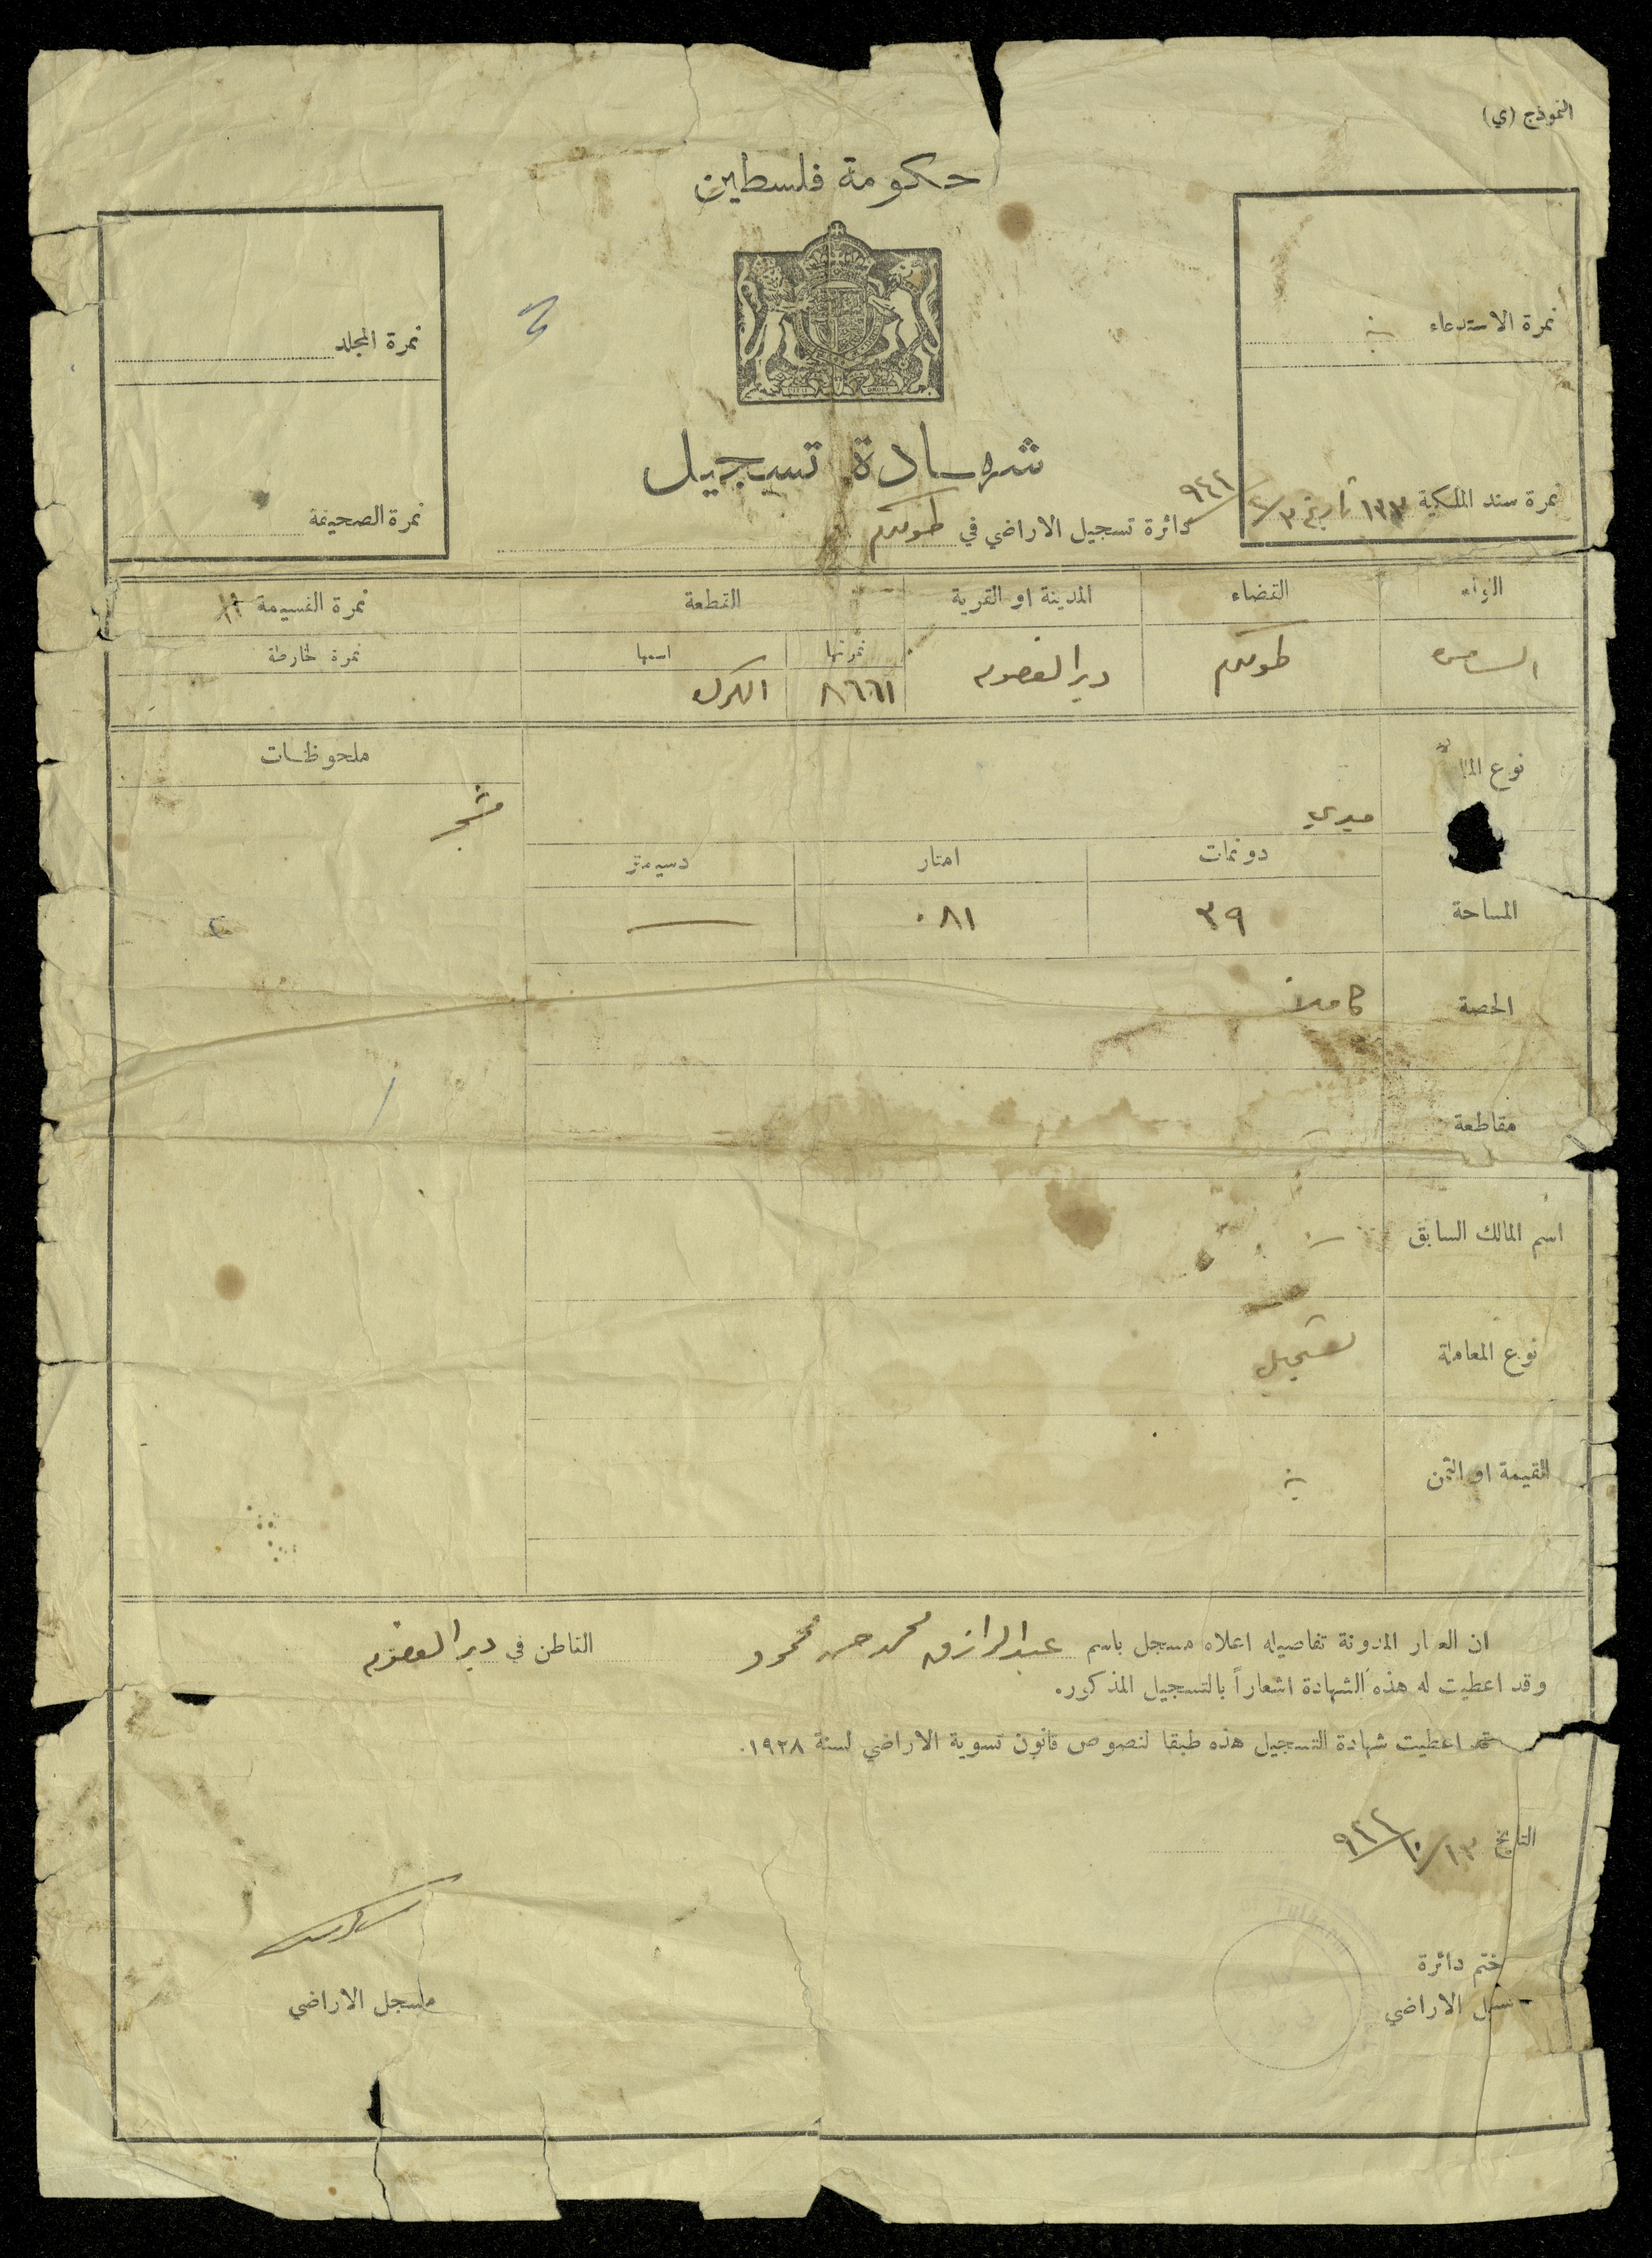 النموذج (ي)
حكومة فلسطين
نمرة الاستدعاء
نمرة المجلد
شهادة تسجيل
نمرة سند الملكية ١٣٣ تاريخ ٣/٢/٩٤١
دائرة تسجيل الاراضي في طولكرم
نمرة الصحيفة
اللواء
القضاء
المدينة او القرية
القطعة
نمرة القسيمة ١١
نمرتها
اسمها
نمرة خارطة
السامرة
طولكرم
دير الغصون
٨٦٦١
الكرك
نوع الملك
ميري
ملحوظات
مشجر
دونمات
امتار
دسيمتر
المساحة
٣٩
٠٨١
—
الحصة
كاملا
مقاطعة
اسم المالك السابق
نوع المعاملة
تسجيل
القيمة او الثمن
ان العقار المدونة تفاصيله اعلاه مسجل باسم عبدالرازق محمد حسن محمود القاطن في دير الغصون
وقد اعطيت له هذه الشهادة اشعاراً بالتسجيل المذكور.
قد اعطيت شهادة التسجيل هذه طبقا لنصوص قانون تسوية الاراضي لسنة ١٩٢٨.
التاريخ ١٣/١٠/٩٤٢
ختم دائرة
تسجيل الاراضي
مسجل الاراضي